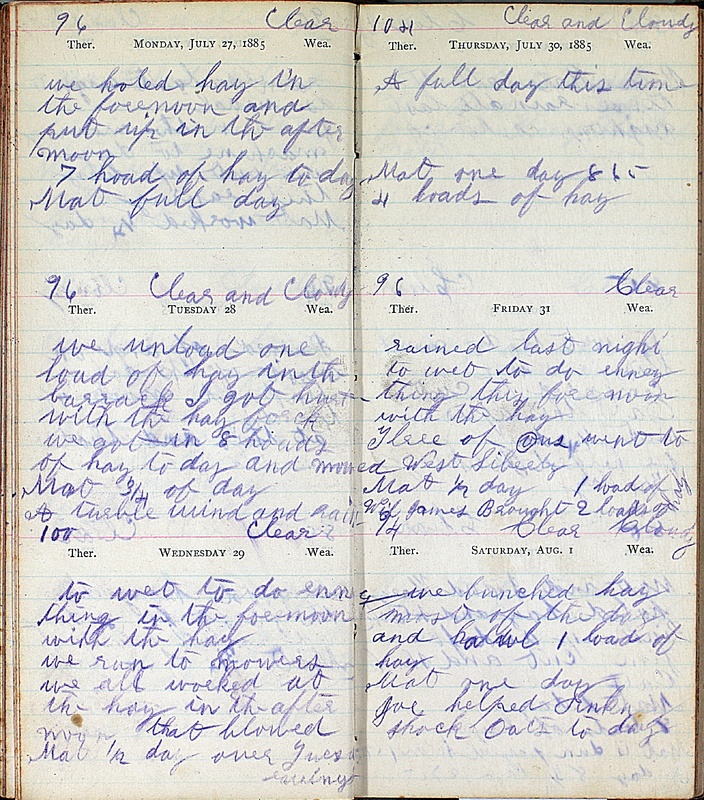 96 Clear
Ther. MONDAY, JULY 27, 1885 Wea.
we holed hay in
the foernoon and
put up in the after
moon
7 load of hay to day
Mat full day
96 Clear and Clowdy
Ther. TUESDAY 28 Wea.
we unload one
load of hay in the
barrack I got hurt
with the hay forck
we got in 8 loads
of hay to day and mowed
Mat 3/4 of day
A turble wind and rain
100 Clear
Ther. WEDNESDAY 29 Wea.
to wet to do enny
thing in the foernoon
with the hay
we run to mowers
we all worked at
the hay in the after
moon that blowed
Mat 1/2 day over Tuesd
evening
104 Clear and Clowdy
Ther. THURSDAY, JULY 30, 1885 Wea.
A full day this time
Mat one day
4 loads of hay
96 Clear
Ther. FRIDAY 31 Wea.
rained last night
to wet to do enney
thing this foernoon
with the hay
Three of us went to
West Liberty
Mat 1/2 day 1 load of hay
James Brought 2 loads of
94 Clear Clowdy
Ther. SATURDAY, AUG. 1 Wea.
we bunched hay
most of the day
and hawl 1 load of
hay
Mat one day
Joe helped
shock Oats to day